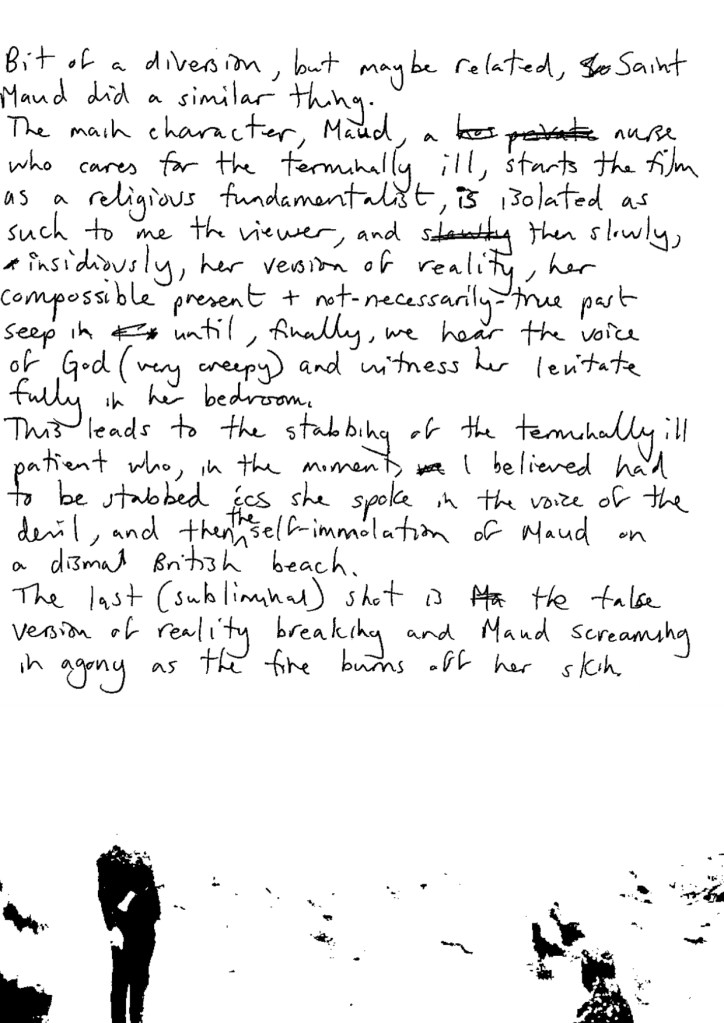 Bit of a diversion, but maybe related, Saint
Maud did a similar thing.
The main character, Maud, a nurse
who cares for the terminally ill, starts the film
as a religious fundamentalist, is isolated as
such to me the viewer, and then slowly,
insidiously, her version of reality, her
compossible present + not-necessarily-true past
seep in until, finally, we hear the voice
of God (very creepy) and witness her levitate
fully in her bedroom.
This leads to the stabbing of the terminally ill
patient who, in the moment, I believed had
to be stabbed cos she spoke in the voice of the
devil, and then the self-immolation of Maud on
a dismal British beach.
The last (subliminal) shot is the false
version of reality breaking and Maud screaming
in agony as the fire burns off her skin.